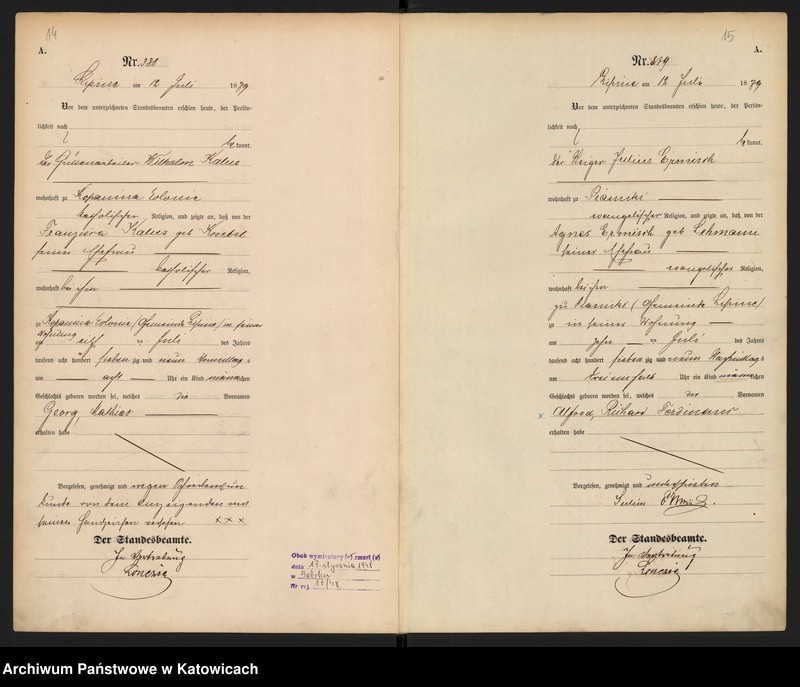 14
A.
Nr. 380
Lipine am 12 Juli 1879
Vor dem unterzeichneten Standesbeamten erschien heute, der Persön-
lichkeit nach
be kannt,
der Wilhelm Kalus
wohnhaft zu Kopanina Colonie
katholischer Religion, und zeigte an, daß von der
Franziska Kalus geb
seiner Ehefrau
katholischer Religion,
wohnhaft bei ihm
zu Kopanina Colonie (Gemeinde Lipine) in seiner
Wohnung
am elf ten Juli des Jahres
tausend acht hundert sieben zig und neun Vormittag s
um acht Uhr ein Kind männlichen
Geschlechts geboren worden sei, welches die Vornamen
Georg, Mathias
erhalten habe
Vorgelesen, genehmigt und wegen
kunde von dem Anzeigenden mit
seinem Handzeichen versehen xxx
Der Standesbeamte.
In Vertretung
Obok wymieniony (a) zmarł (a)
dnia 17 stycznia 1948
w
Nr rej. 17/48
15
A.
Nr. 379
Lipine am 12 Juli 1879
Vor dem unterzeichneten Standesbeamten erschien heute, der Persön-
lichkeit nach
be kannt,
der Julius Ermisch
wohnhaft zu Piasniki
evangelischer Religion, und zeigte an, daß von der
Agnes Ermisch geb Lehmann
seiner Ehefrau
evangelischer Religion,
wohnhaft bei ihm
zu Piasniki (Gemeinde Lipine)
in seiner Wohnung
am zehn ten Juli des Jahres
tausend acht hundert sieben zig und neun Nachmittag s
um dreieinhalb Uhr ein Kind männlichen
Geschlechts geboren worden sei, welches die Vornamen
x Alfred, Richard Ferdinand
erhalten habe
Vorgelesen, genehmigt und unterschrieben
Julius
Der Standesbeamte.
In Vertretung
Archiwum Państwowe w Katowicach